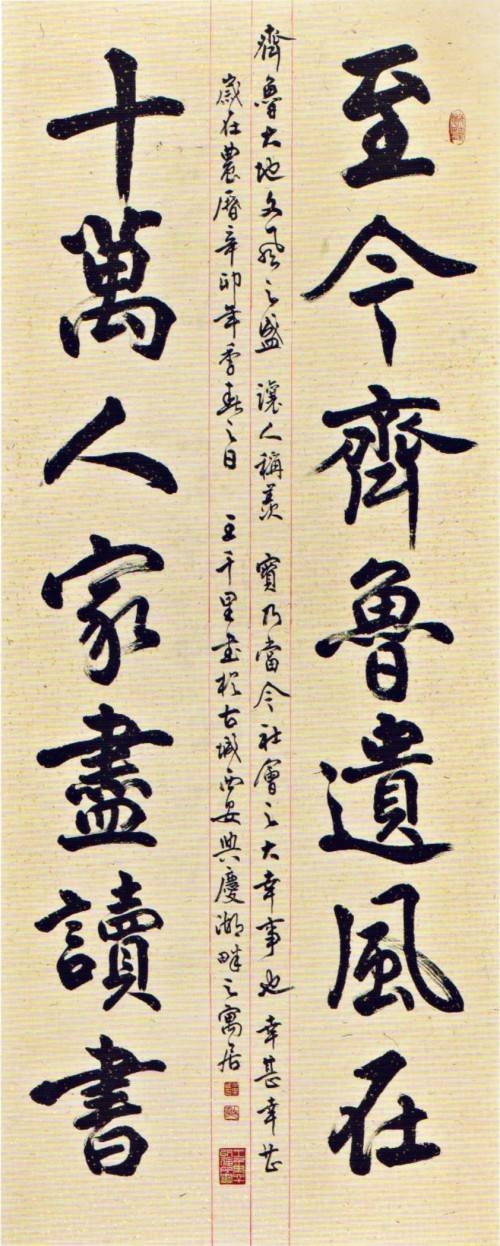 至今齊魯遺風在
齊魯大地文風之盛 讓人稱羨 實乃當今社會之大幸事也 幸甚幸甚
歲在農曆辛卯年季春之日 王千里書於古城西安興慶湖畔之寓居
十萬人家盡讀書